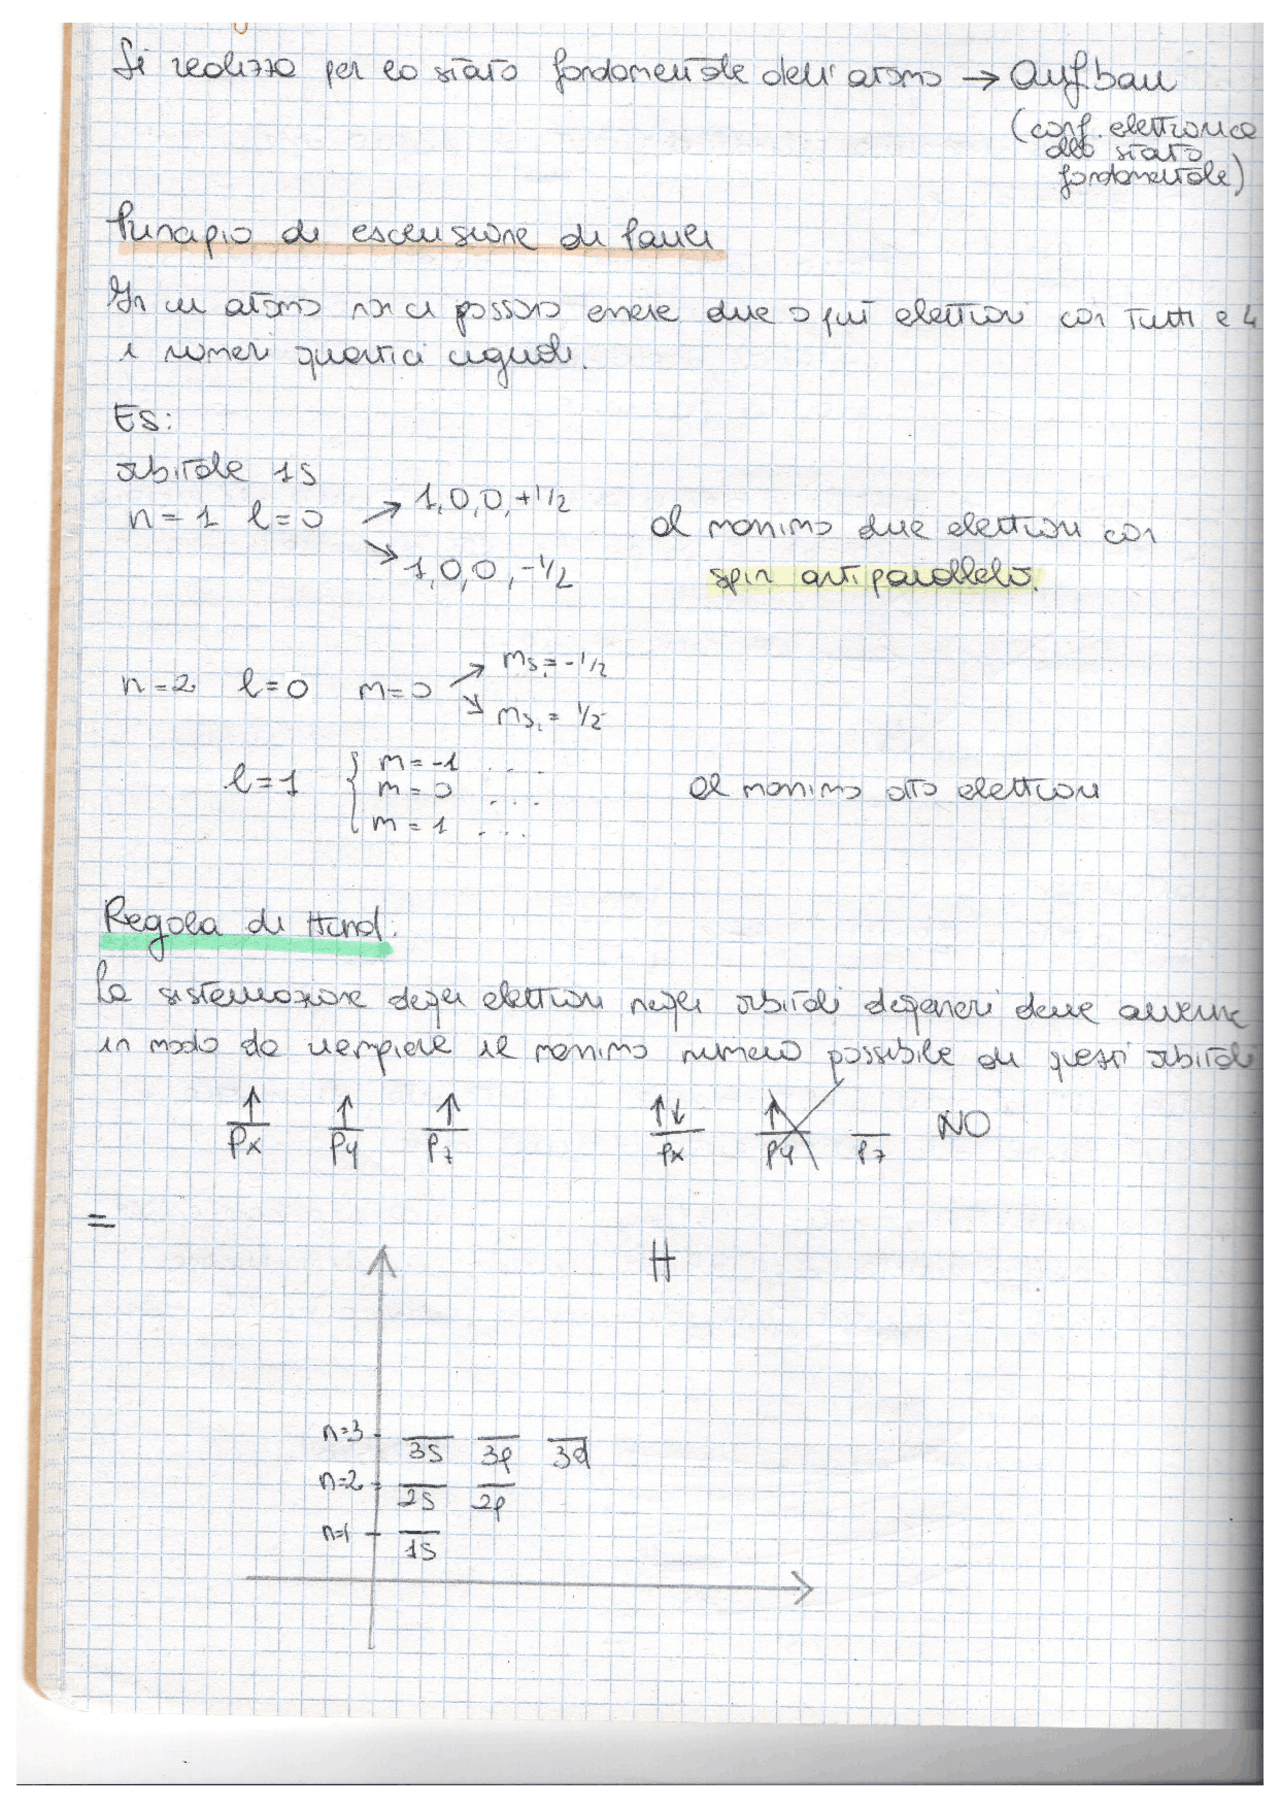 Si realizza per lo stato fondamentale dell'atomo → Aufbau
(conf. elettronica
dello stato
fondamentale)
Principio di esclusione di Pauli
In un atomo non ci possono essere due o più elettroni con tutti e 4
i numeri quantici uguali.
ES:
orbitale 1s
n=1 l=0 → 1,0,0,+1/2
→ 1,0,0,-1/2
al massimo due elettroni con
spin antiparalleli.
n=2 l=0 m=0 → ms=-1/2
→ ms=1/2
l=1 { m=-1 ....
m=0 ...
m=1 ....
al massimo otto elettroni
Regola di Hund.
La sistemazione degli elettroni negli orbitali degeneri deve avvenire
in modo da riempire il massimo numero possibile di questi orbitali
↑ ↑ ↑ ↑↓ ↑ NO
px py pz px py pz
=
H
n=3 3s 3p 3d
n=2 2s 2p
n=1 1s